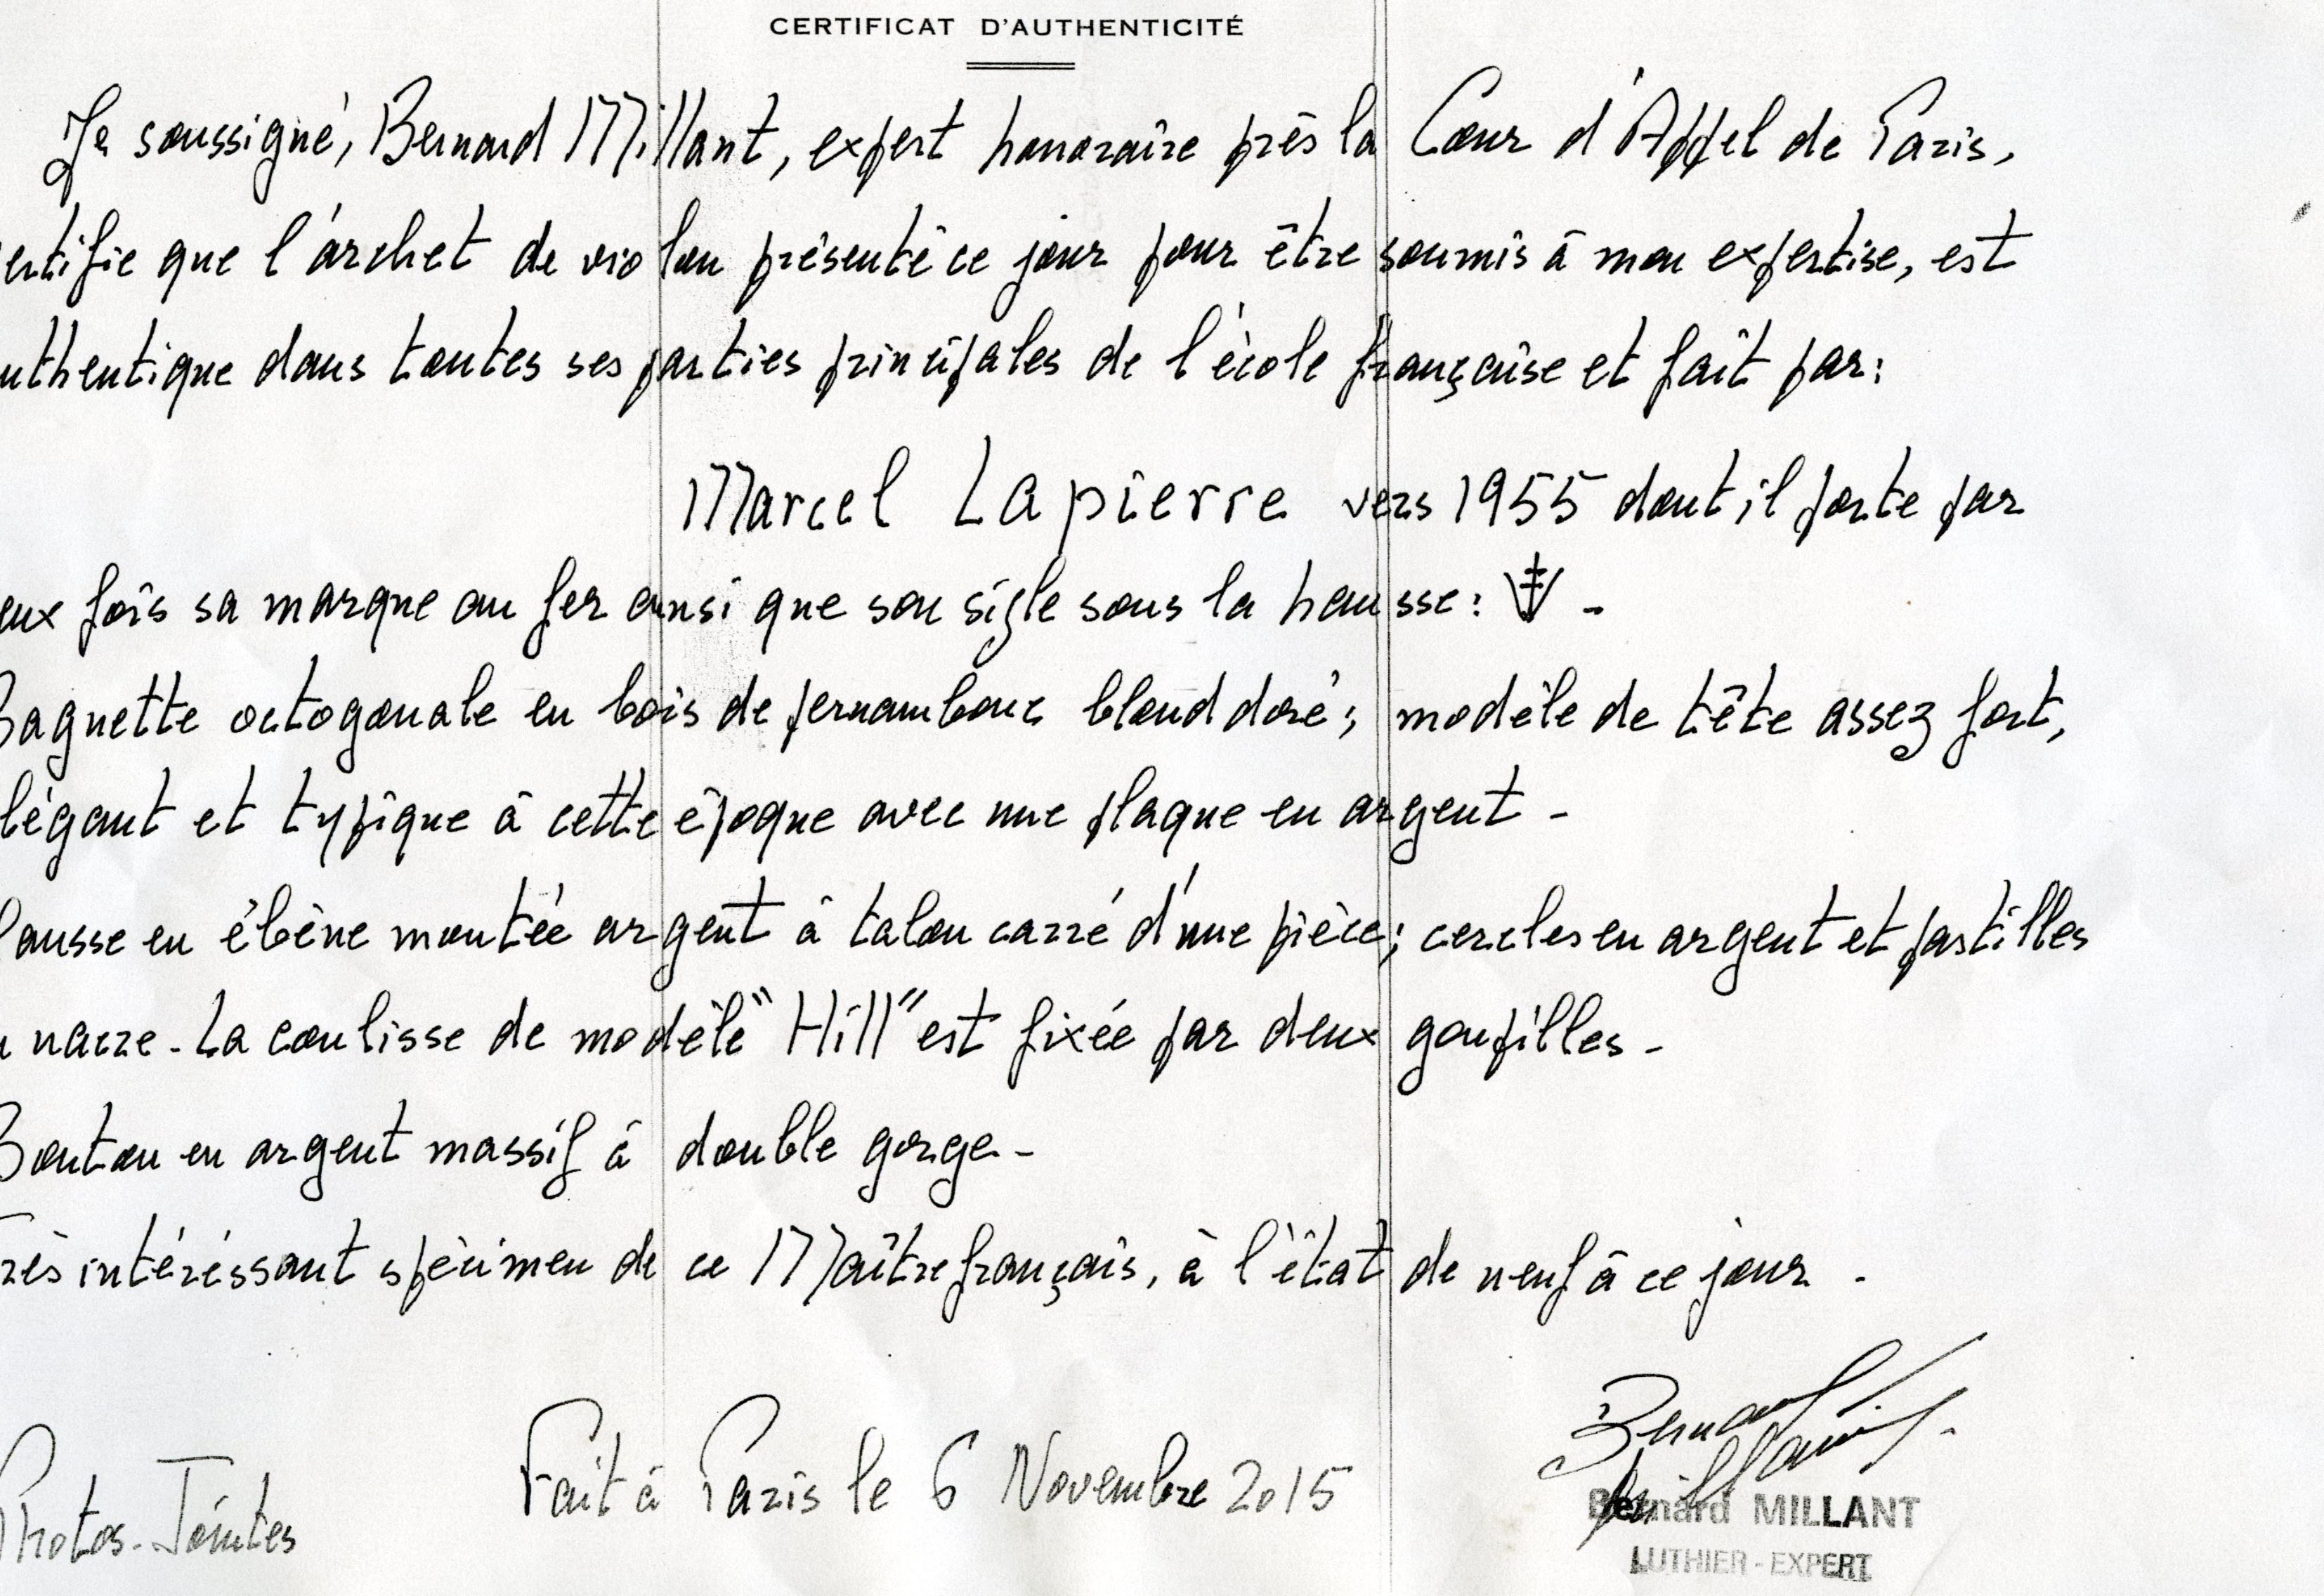 CERTIFICAT D'AUTHENTICITÉ
Je soussigné, Bernard Millant, expert honoraire près la Cour d'Appel de Paris,
ertifie que l'archet de violon présenté ce jour pour être soumis à mon expertise, est
uthentique dans toutes ses parties principales de l'école française et fait par:
Marcel Lapierre vers 1955 dont il porte par
eux fois sa marque au fer ainsi que son sigle sous la hausse: -
Baguette octogonale en bois de pernambouc blond doré; modèle de tête assez fort,
légant et typique à cette époque avec une plaque en argent -
Hausse en ébène montée argent à talon carré d'une pièce; cercles en argent et pastilles
n nacre - La coulisse de modèle "Hill" est fixée par deux goupilles -
Bouton en argent massif à double gorge -
Très intéréssant spécimen de ce Maître français, à l'état de neuf à ce jour -
Bernard Millant
Fait à Paris le 6 Novembre 2015
Photos - Jointes
Bernard MILLANT
LUTHIER - EXPERT